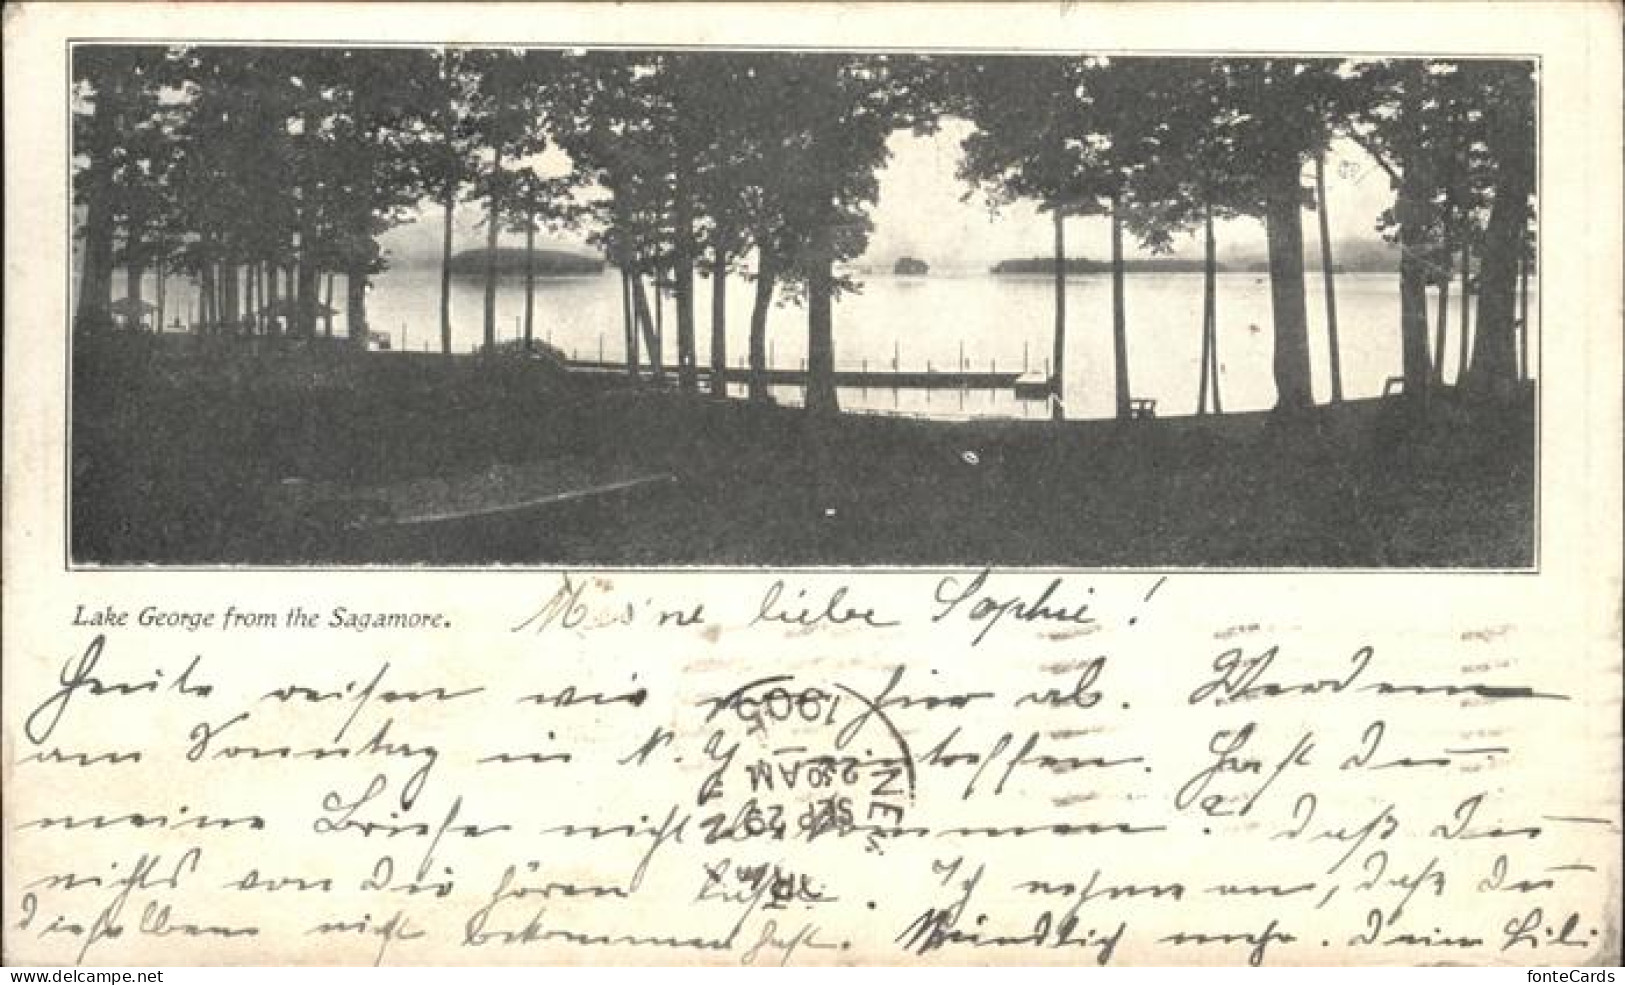 Lake George from the Sagamore.
Meine liebe Sophie!
Heute reisen wir von hier ab. Werden
am Sonntag in N. Y. eintreffen. Hast Du
meine Briefe nicht bekommen? Daß Du
nichts von Dir hören läßt. Ich nehme an, daß Du
dieselben nicht bekommen hast. Mündlich mehr. Deine Lili
1905
2 30 AM
SEP 29
NEW
www.delcampe.net
fonteCards